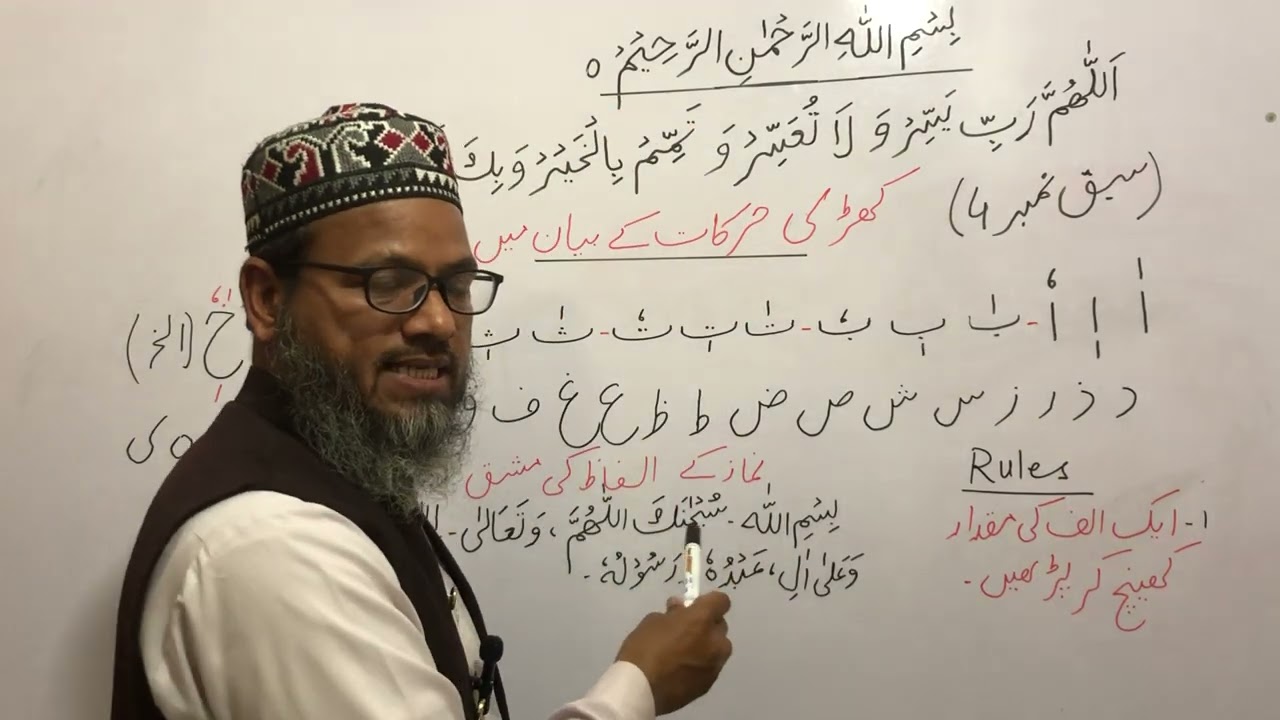 بِسْمِ اللّٰهِ الرَّحْمٰنِ الرَّحِيْمِ ○
اَللّٰهُمَّ رَبِّ يَسِّرْ وَ لَا تُعَسِّرْ وَ تَمِّمْ بِالْخَيْرِ وَ بِكَ
(سبق نمبر 4)
کھڑی حرکات کے بیان میں
اٰ اٖ اٗ - بٰ بٖ بٗ - تٰ تٖ تٗ - ثٰ ثٖ خ (الخ)
د ذ ر ز س ش ص ض ط ظ ع غ ف ہ ی
نماز کے الفاظ کی مشق
بِسْمِ اللّٰه - سُبْحٰنَكَ اللّٰهُمَّ ، وَتَعَالٰى -
وَعَلٰى اٰلِ ، عَبْدُهٗ رَسُوْلُهٗ -
Rules
۱- ایک الف کی مقدار
کھینچ کر پڑھیں -